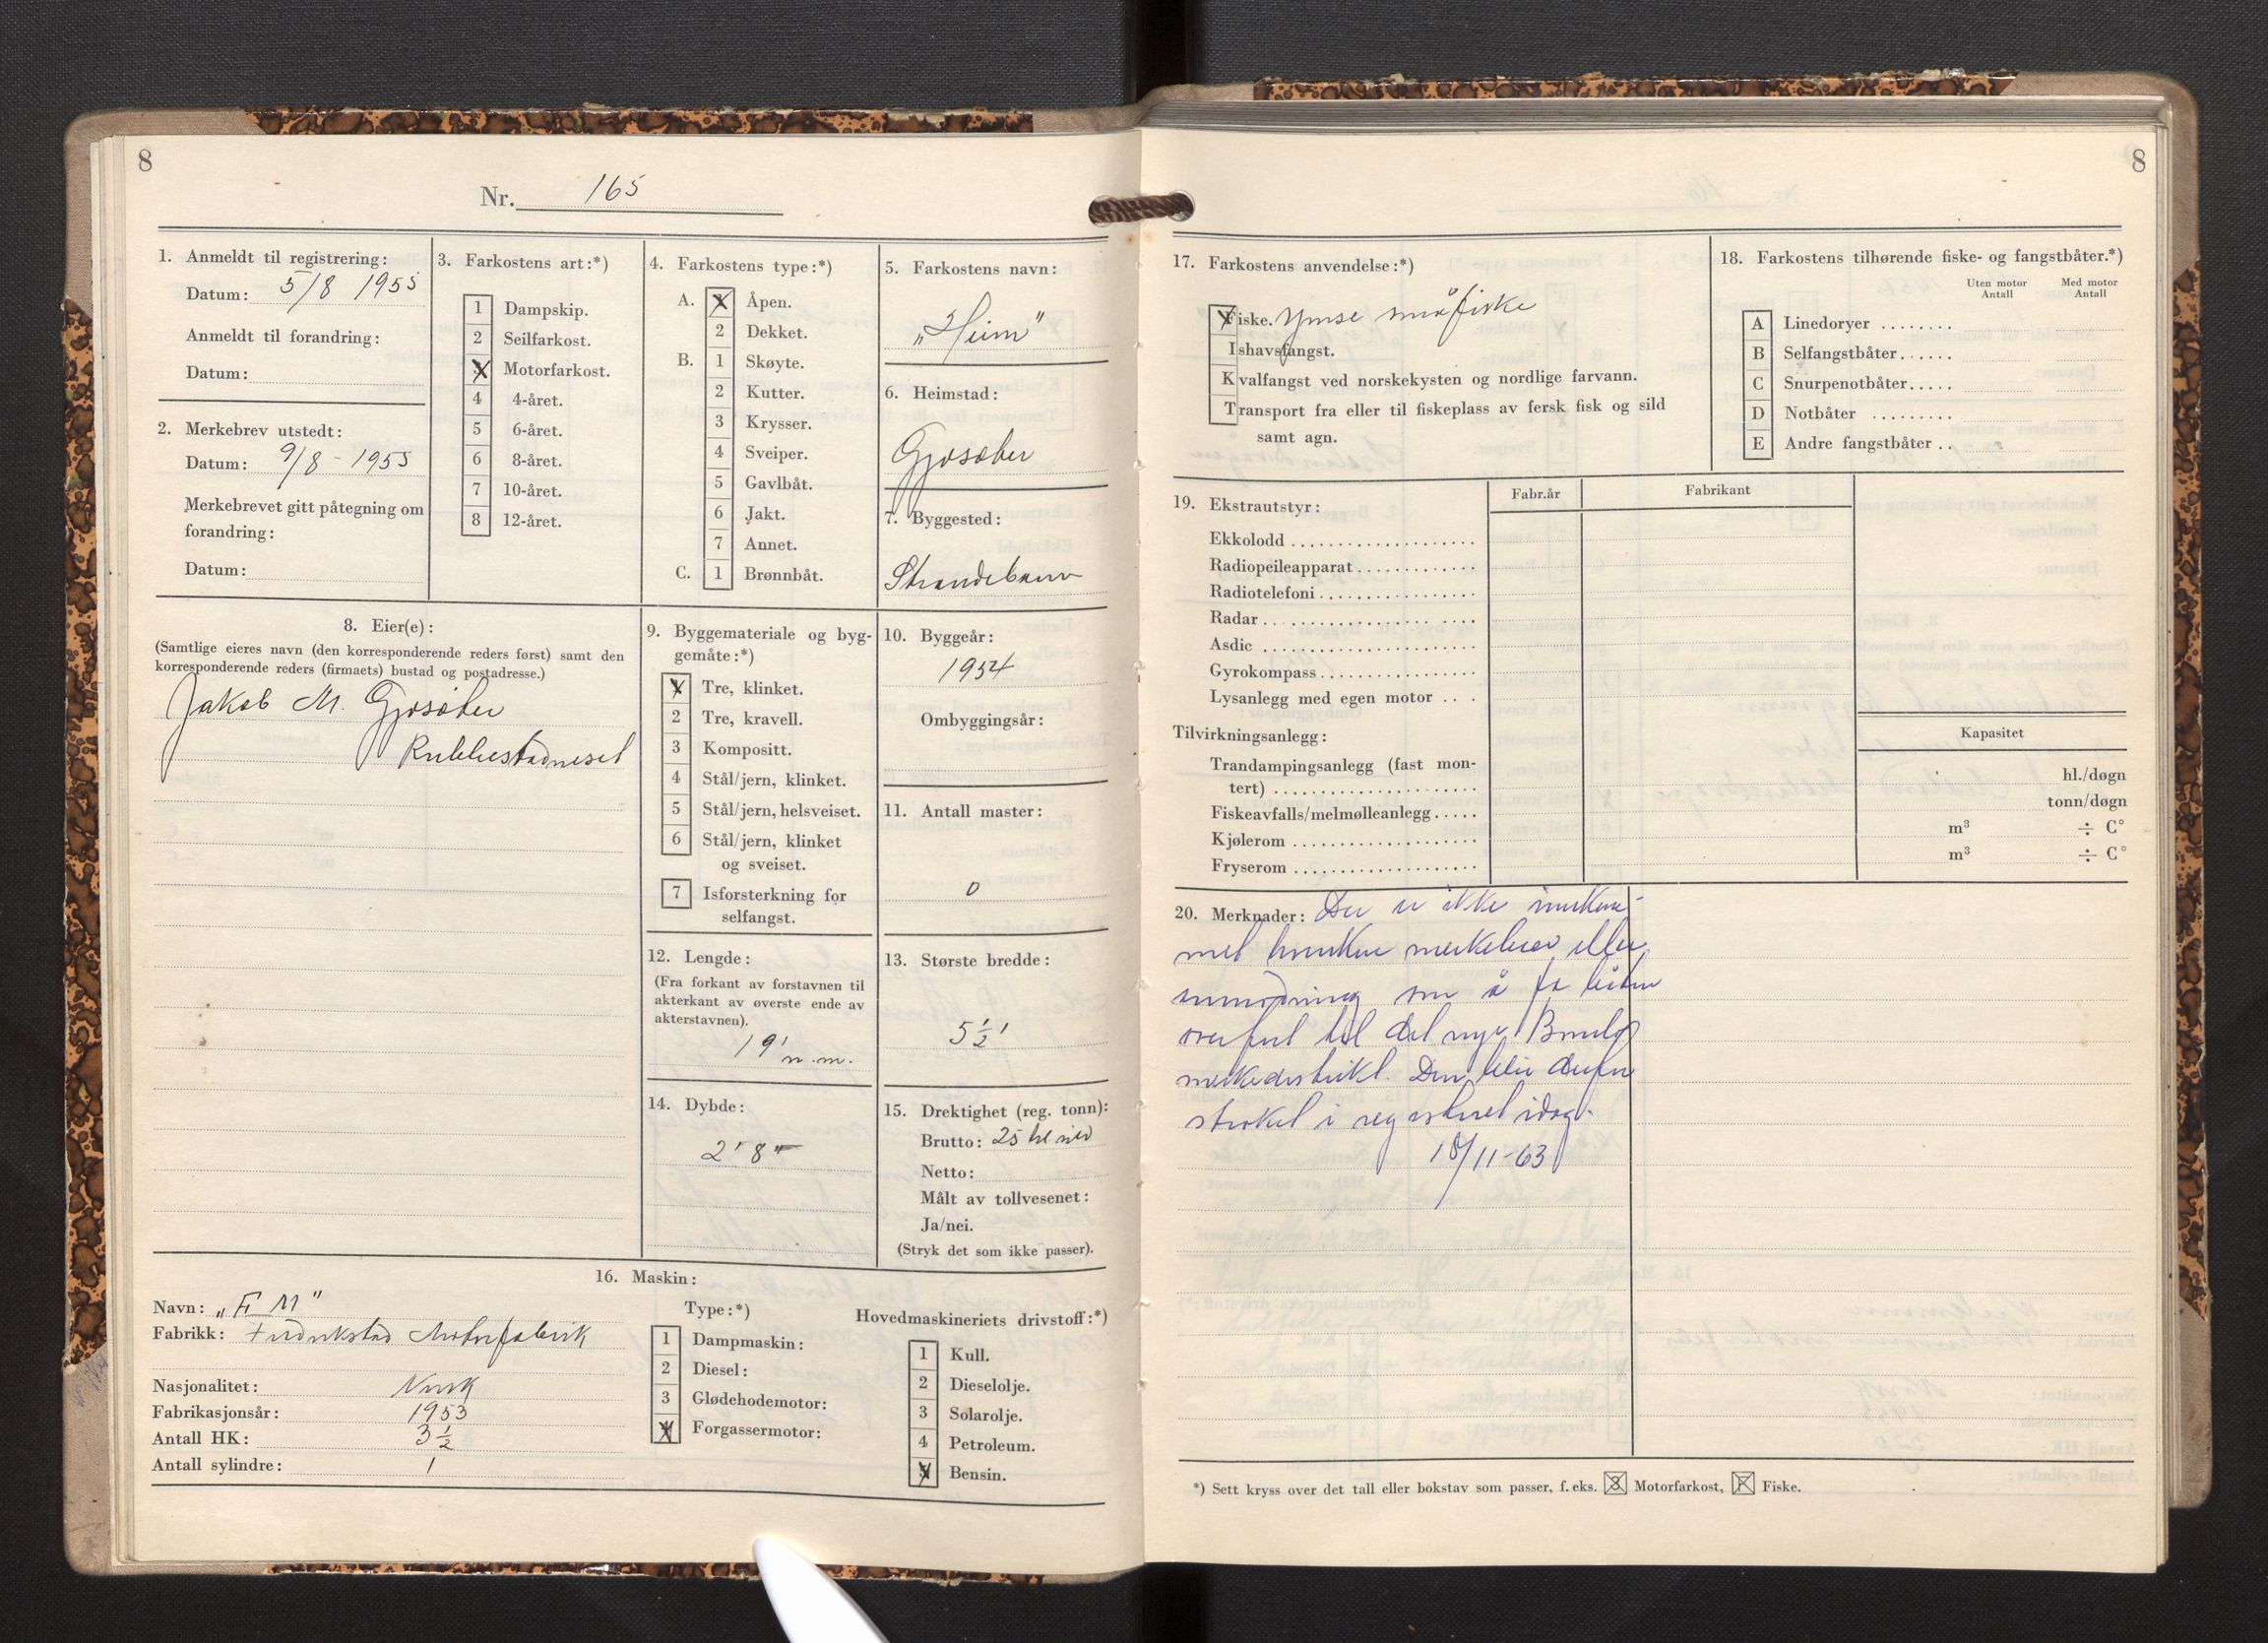 8
Nr. 165
1. Anmeldt til registrering:
Datum: 5/8 1955
Anmeldt til forandring:
Datum:
2. Merkebrev utstedt:
Datum: 9/8 - 1955
Merkebrevet gitt påtegning om
forandring:
Datum:
3. Farkostens art:*)
1 Dampskip.
2 Seilfarkost.
X Motorfarkost.
4 4-året.
5 6-året.
6 8-året.
7 10-året.
8 12-året.
4. Farkostens type:*)
A. X Åpen.
2 Dekket.
B. 1 Skøyte.
2 Kutter.
3 Krysser.
4 Sveiper.
5 Gavlbåt.
6 Jakt.
7 Annet.
C. 1 Brønnbåt.
5. Farkostens navn:
„Heim"
6. Heimstad:
Gjøsæter
7. Byggested:
Strandebarm
8. Eier(e):
(Samtlige eieres navn (den korresponderende reders først) samt den
korresponderende reders (firmaets) bustad og postadresse.)
Jakob M. Gjøsæter
Rubbestadneset
9. Byggemateriale og byg-
gemåte:*)
X Tre, klinket.
2 Tre, kravell.
3 Kompositt.
4 Stål/jern, klinket.
5 Stål/jern, helsveiset.
6 Stål/jern, klinket
og sveiset.
7 Isforsterkning for
selfangst.
10. Byggeår:
1954
Ombyggingsår:
11. Antall master:
0
12. Lengde:
(Fra forkant av forstavnen til
akterkant av øverste ende av
akterstavnen).
19' n.m.
13. Største bredde:
5 1/2'
14. Dybde:
2' 8"
15. Drektighet (reg. tonn):
Brutto: 25 hl sild
Netto:
Målt av tollvesenet:
Ja/nei.
(Stryk det som ikke passer).
16. Maskin:
Navn: „F M"
Fabrikk: Fredrikstad Motorfabrik
Nasjonalitet: Norsk
Fabrikasjonsår: 1953
Antall HK: 3 1/2
Antall sylindre: 1
Type:*)
1 Dampmaskin:
2 Diesel:
3 Glødehodemotor:
X Forgassermotor:
Hovedmaskineriets drivstoff:*)
1 Kull.
2 Dieselolje.
3 Solarolje.
4 Petroleum.
X Bensin.
8
17. Farkostens anvendelse:*)
Fiske. Ymse småfiske
Ishavsfangst.
Kvalfangst ved norskekysten og nordlige farvann.
Transport fra eller til fiskeplass av fersk fisk og sild
samt agn.
18. Farkostens tilhørende fiske- og fangstbåter.*)
Uten motor Med motor
Antall Antall
A Linedoryer
B Selfangstbåter
C Snurpenotbåter
D Notbåter
E Andre fangstbåter
19. Ekstrautstyr:
Fabr.år Fabrikant
Ekkolodd
Radiopeileapparat
Radiotelefoni
Radar
Asdic
Gyrokompass
Lysanlegg med egen motor
Tilvirkningsanlegg:
Kapasitet
Trandampingsanlegg (fast mon-
tert) hl./døgn
Fiskeavfalls/melmølleanlegg tonn/døgn
Kjølerom m³ ÷ C°
Fryserom m³ ÷ C°
20. Merknader: Der er ikke innkom-
met hverken merkebrev eller
anmodning om å få båten
overført til det nye Bømlo
merkedistrikt. Den blir derfor
strøket i registeret idag.
18/11-63
*) Sett kryss over det tall eller bokstav som passer, f. eks. 3 Motorfarkost, F Fiske.